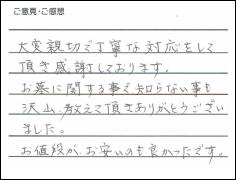 ご意見・ご感想
大変親切で丁寧な対応をして
頂き感謝しております。
お墓に関する事で知らない事も
沢山、教えて頂きありがとうござい
ました。
お値段が、お安いのも良かったです。